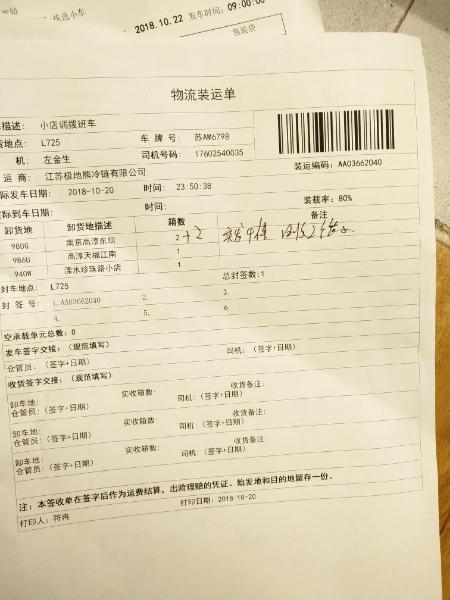 2018.10.22 发车时间: 09:00:00
包装袋
物流装运单
描述: 小店调拨班车
地点: L725 车 牌 号: 苏AM6798
机: 左金生 司机号码: 17602540035
运 商: 江苏极地熊冷链有限公司 装运编码: AA03662040
际发车日期: 2018-10-20 时间: 23:50:38 装载率: 80%
实际到车日期: 时间:
卸货地 卸货地描述 箱数 备注
980G 南京高淳东坝 2+2
986U 高淳天福江南 1
940W 溧水珍珠路小店 1
封车地点: L725 总封签数:1
封 签 号: 1.AA03662040 2. 3.
4. 5. 6.
空承载单元总数: 0
发车签字交接: (规范填写)
仓管员: (签字+日期) 司机: (签字+日期)
收货签字交接: (规范填写)
卸车地: 实收箱数: 收货备注:
仓管员: (签字+日期) 司机: (签字+日期)
卸车地: 实收箱数: 收货备注:
仓管员: (签字+日期) 司机: (签字+日期)
卸车地: 实收箱数: 收货备注:
仓管员: (签字+日期) 司机: (签字+日期)
注: 本签收单在签字后作为运费结算, 出险理赔的凭证。始发地和目的地留存一份。
打印人: 符冉 打印日期: 2018-10-20